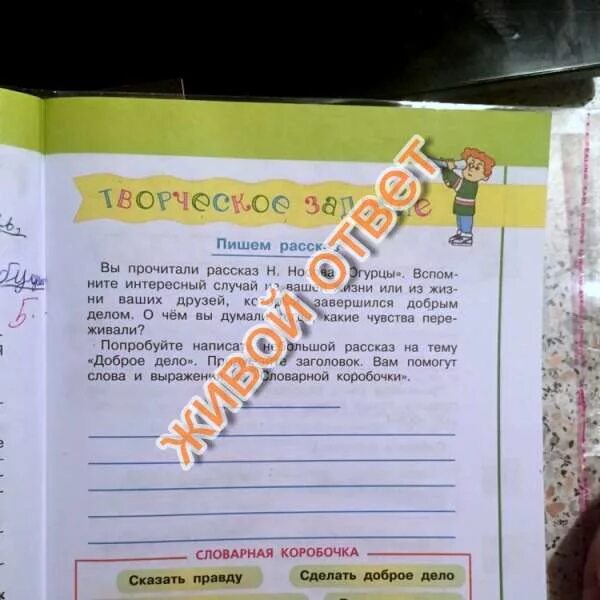 ТВОРЧЕСКОЕ
Пишем
Вы прочитали рассказ Н. Огурцы». Вспом-
ните интересный случай из вашей жизни или из жиз-
ни ваших друзей, завершился добрым
делом. О чём вы думали какие чувства пере-
живали?
Попробуйте написать небольшой рассказ на тему
«Доброе дело». заголовок. Вам помогут
слова и «Словарной коробочки».
СЛОВАРНАЯ КОРОБОЧКА
Сказать правду
Сделать доброе дело
ЖИВОЙ ОТВЕТ
5.